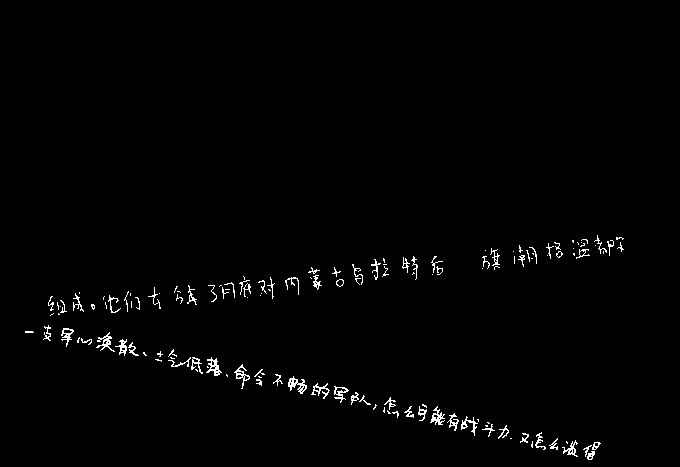 组成。他们去年3月底对内蒙古乌拉特后 旗潮格温都尔
一支军心涣散、士气低落、命令不畅的军队,怎么可能有战斗力.又怎么谈得